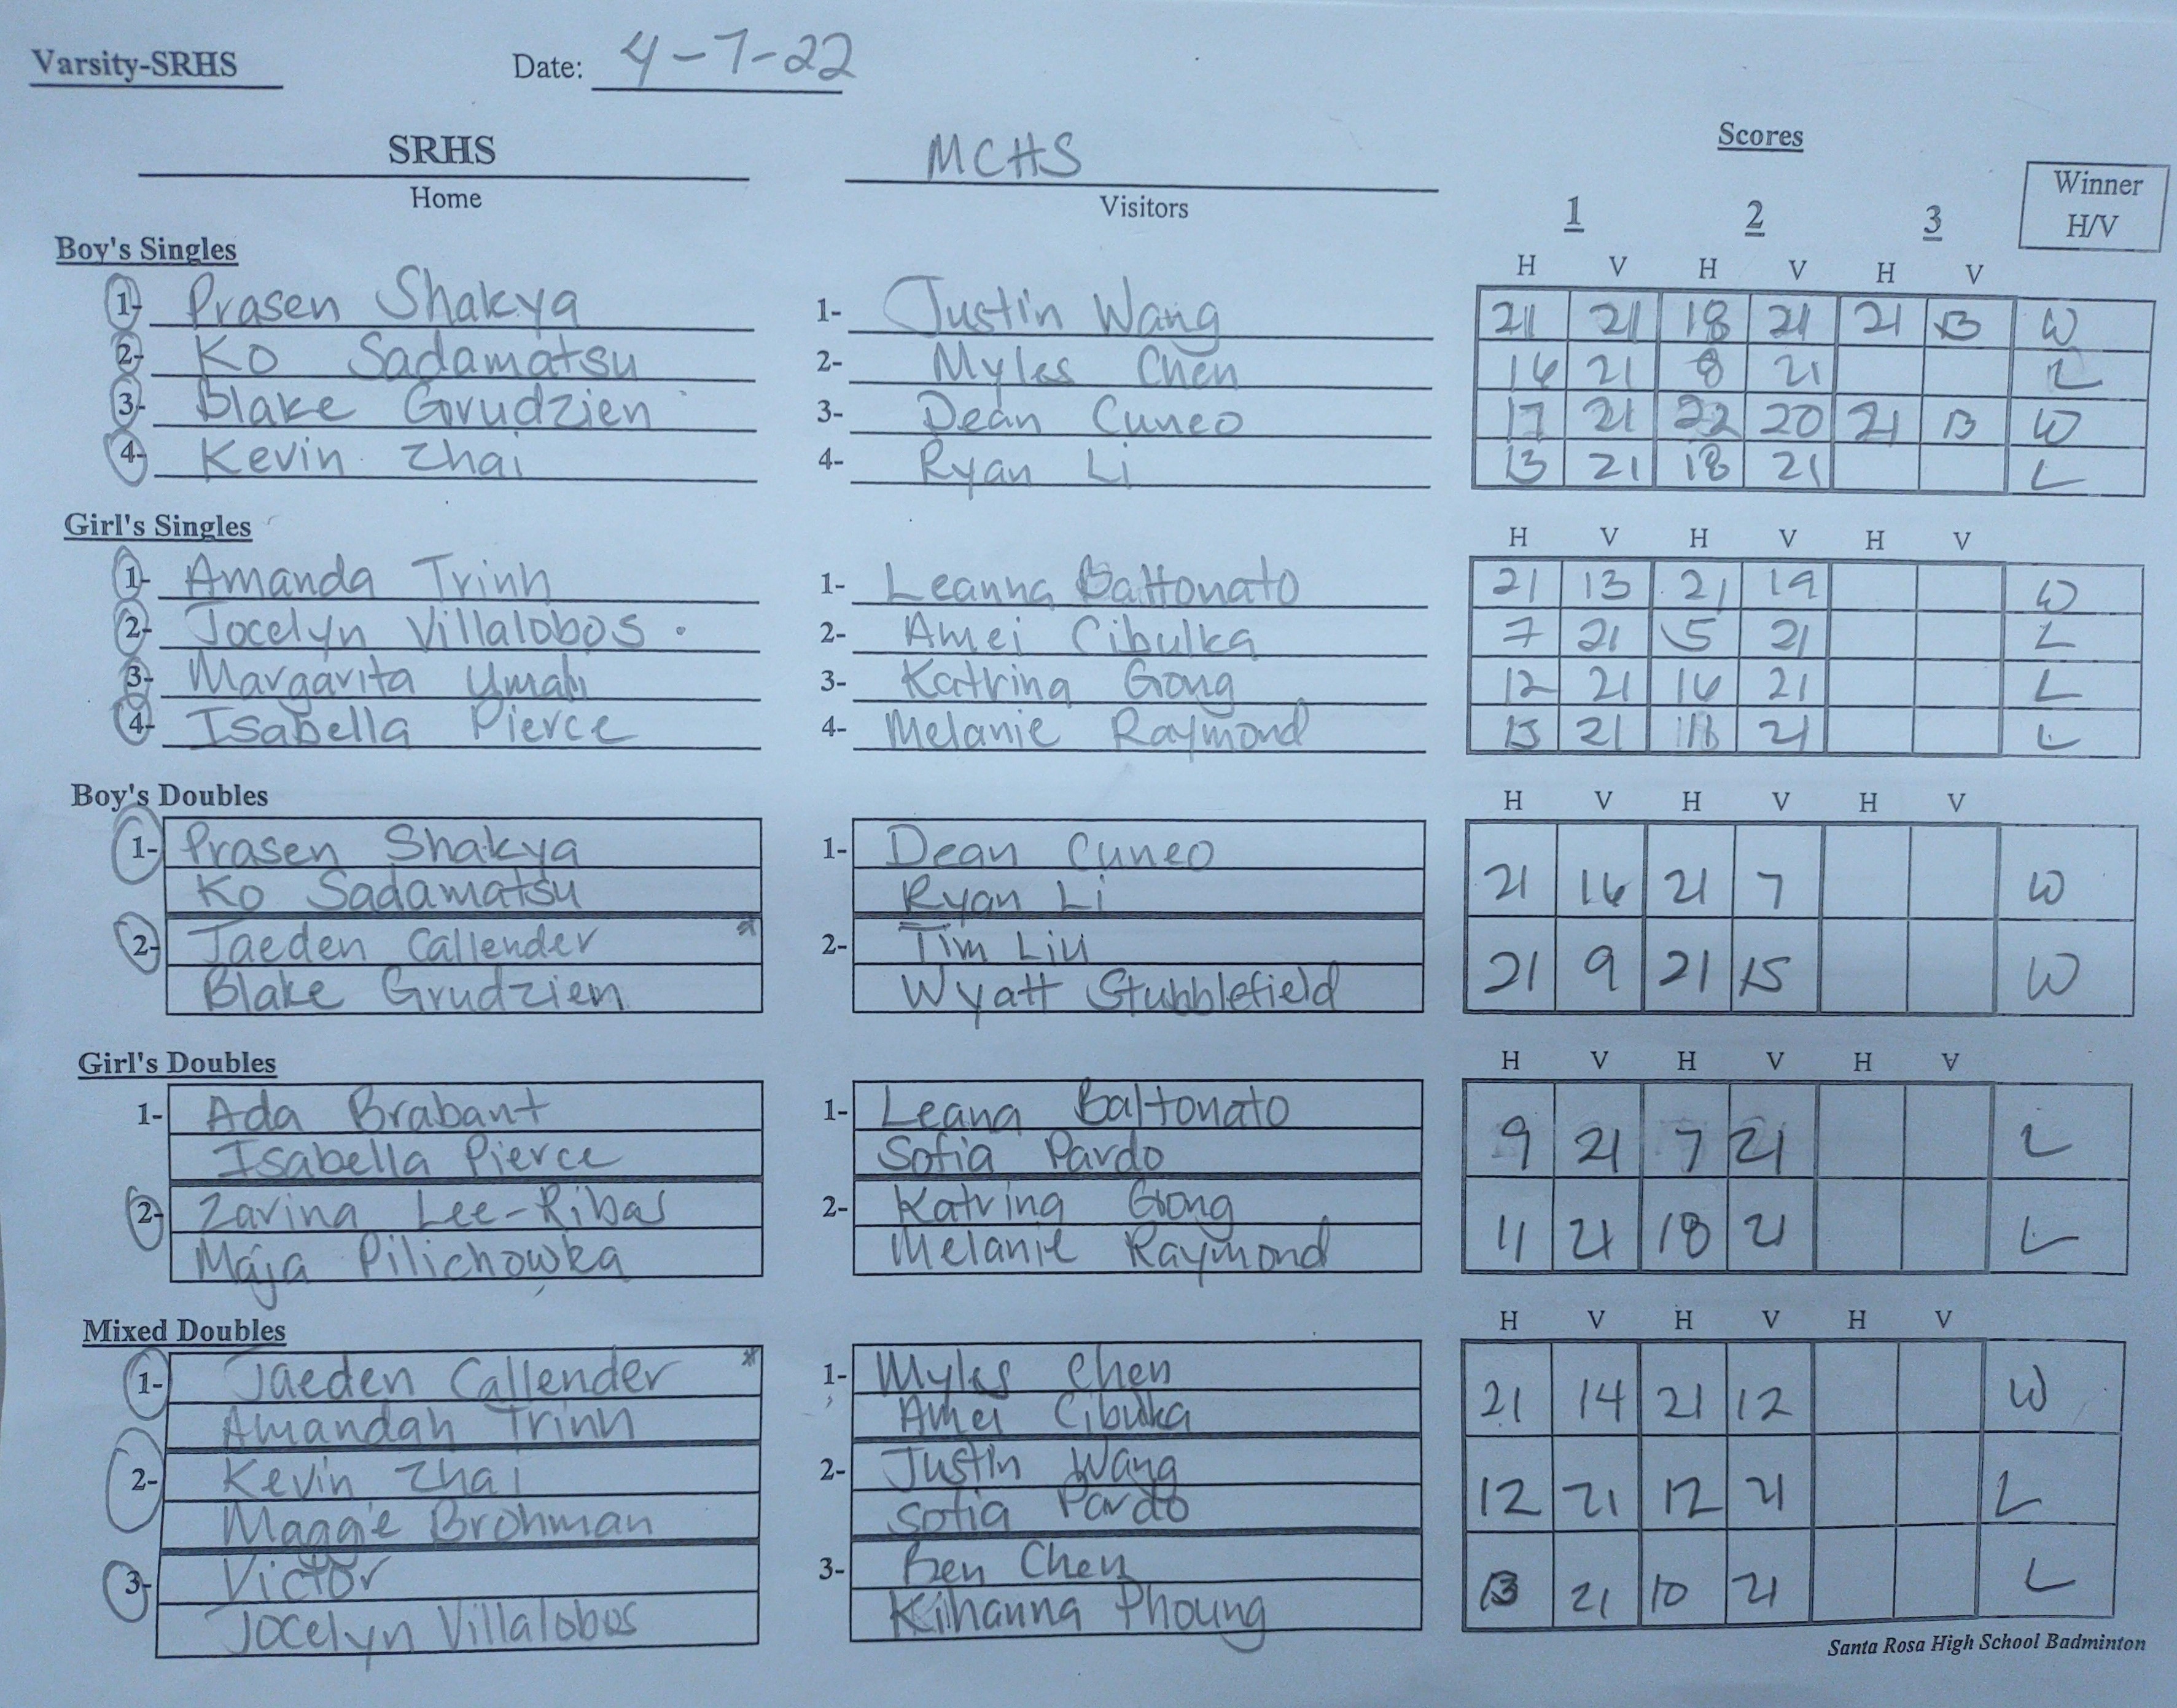 Varsity-SRHS Date: 4-7-22
SRHS MCHS Scores
Home Visitors Winner H/V
1 2 3
Boy's Singles H V H V H V
1- Prasen Shakya 1- Justin Wang 21 21 18 21 21 13 W
2- Ko Sadamatsu 2- Myles Chen 16 21 8 21 L
3- Blake Grudzien 3- Dean Cuneo 17 21 22 20 21 13 W
4- Kevin Zhai 4- Ryan Li 13 21 18 21 L
Girl's Singles H V H V H V
1- Amanda Trinh 1- Leanna Battonato 21 13 21 19 W
2- Jocelyn Villalobos 2- Amei Cibulka 7 21 5 21 L
3- Margarita 3- Katrina Gong 12 21 16 21 L
4- Isabella Pierce 4- Melanie Raymond 15 21 21 L
Boy's Doubles H V H V H V
1- Prasen Shakya 1- Dean Cuneo
Ko Sadamatsu Ryan Li 21 16 21 7 W
2- Jaeden Callender * 2- Tim Liu
Blake Grudzien Wyatt Stubblefield 21 9 21 15 W
Girl's Doubles H V H V H V
1- Ada Brabant 1- Leana Baltonato
Isabella Pierce Sofia Pardo 9 21 7 21 L
2- Zarina Lee-Ribas 2- Katrina Gong
Maja Pilichowka Melanie Raymond 11 21 18 21 L
Mixed Doubles H V H V H V
1- Jaeden Callender * 1- Myles Chen
Amandah Trinh Amei Cibulka 21 14 21 12 W
2- Kevin Zhai 2- Justin Wang
Maggie Brohman Sofia Pardo 12 21 12 21 L
3- Victor 3- Ben Chen
Jocelyn Villalobos Kihanna Phoung 13 21 10 21 L
Santa Rosa High School Badminton